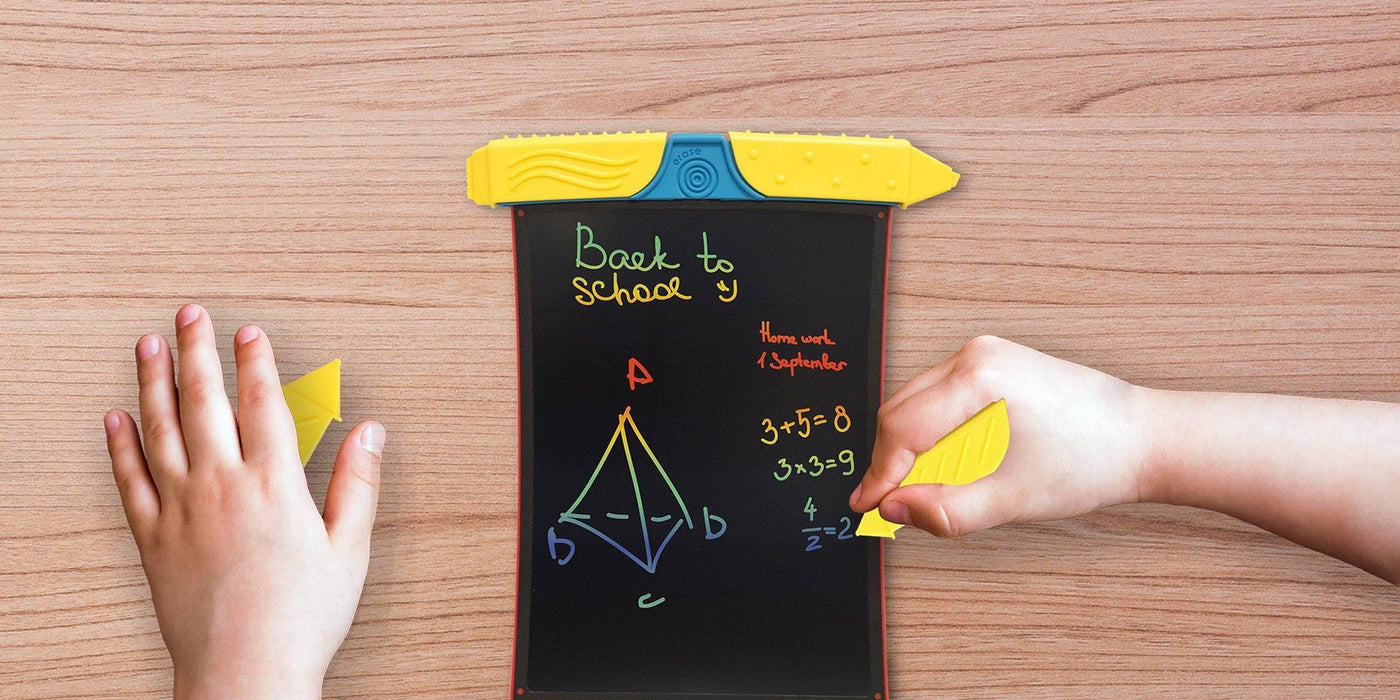 erase
Back to
school
Home work
1 September
A
3+5=8
3×3=9
4
—=2
2
b
D
c